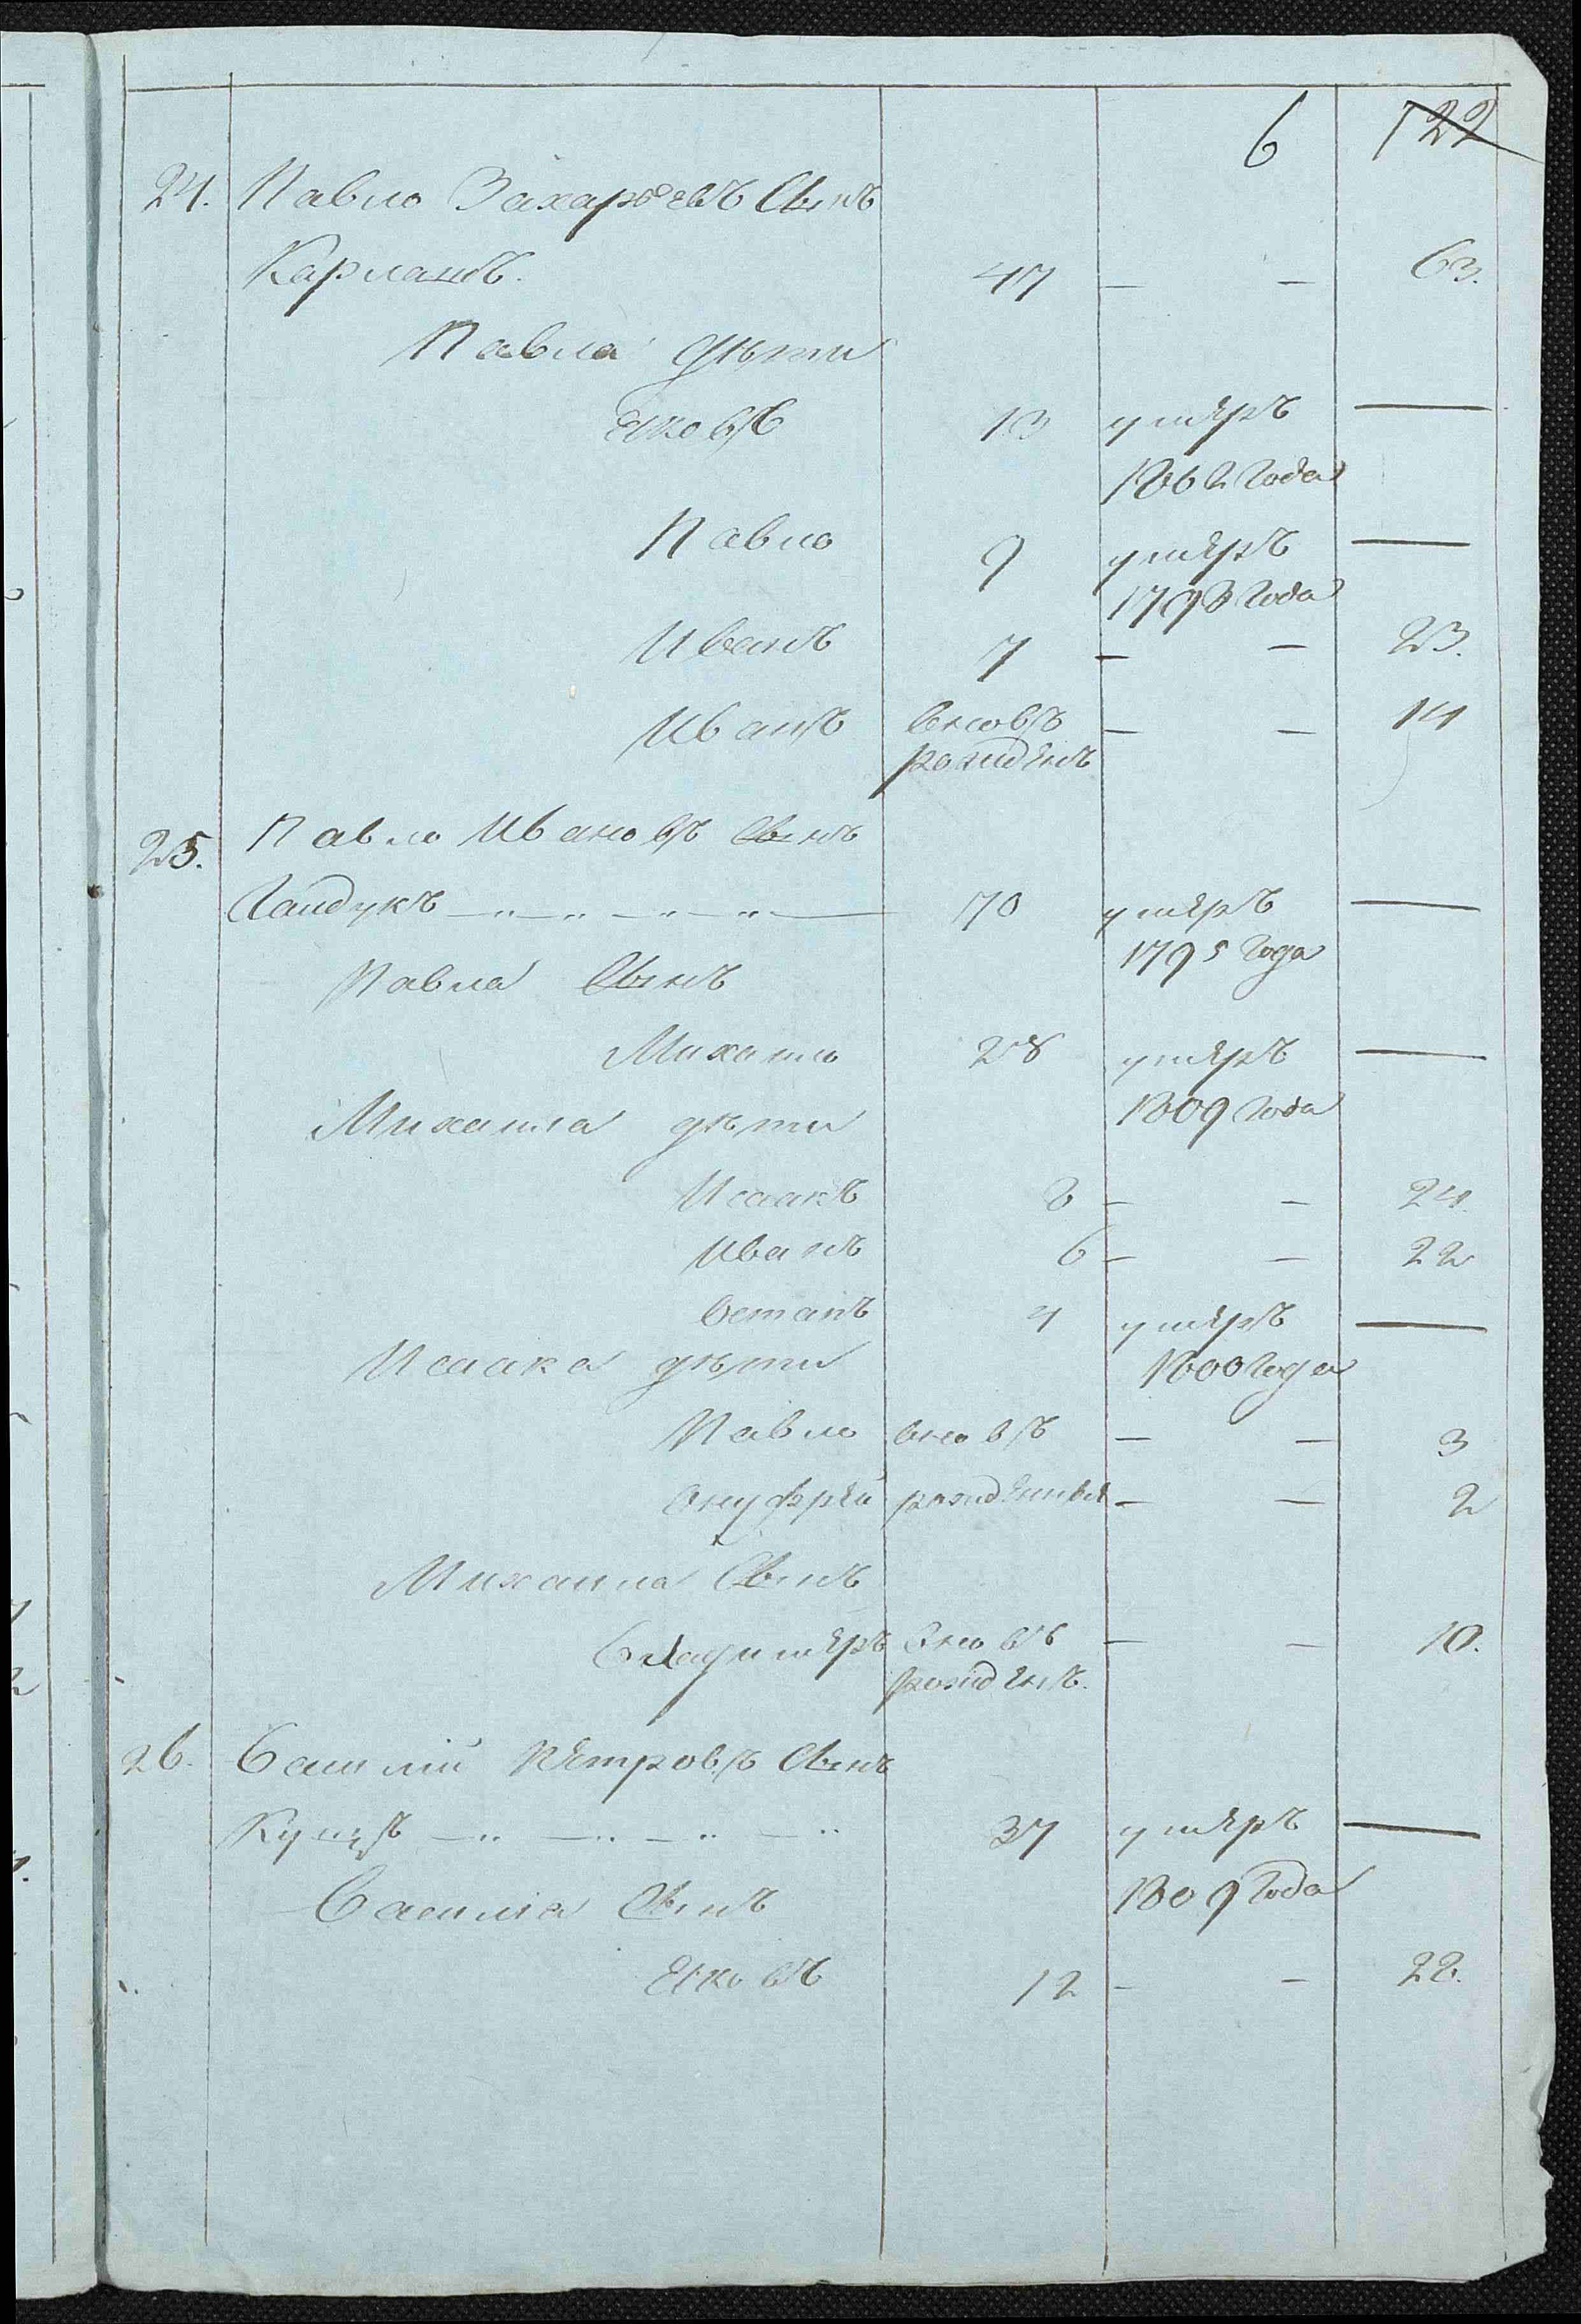 6 722
24. Павло Захарьевъ Сынъ
Карлашъ. 47 — — 63.
Павла дѣти
Яковъ 13 умеръ —
1802 года
Павло 9 умеръ —
1798 года
Иванъ 7 — — 23.
Иванъ вновъ — — 14
рожденъ
25. Павло Ивановъ Сынъ
Гайдукъ —„—„—„—„— 70 умеръ —
1795 года
Павла Сынъ
Михайло 28 умеръ —
1809 года
Михайла дѣти
Исаакъ 8 — — 24.
Иванъ 6 — — 22
Остапъ 4 умеръ —
Исаака дѣти 1800 года
Павло вновъ — — 3
Онуфрей рожденныя — — 2
Михайла Сынъ
Владимеръ вновъ — — 10.
рожденъ.
26. Василій Петровъ Сынъ
37 умеръ —
Василя Сынъ 1809 года
Яковъ 12 — — 28.